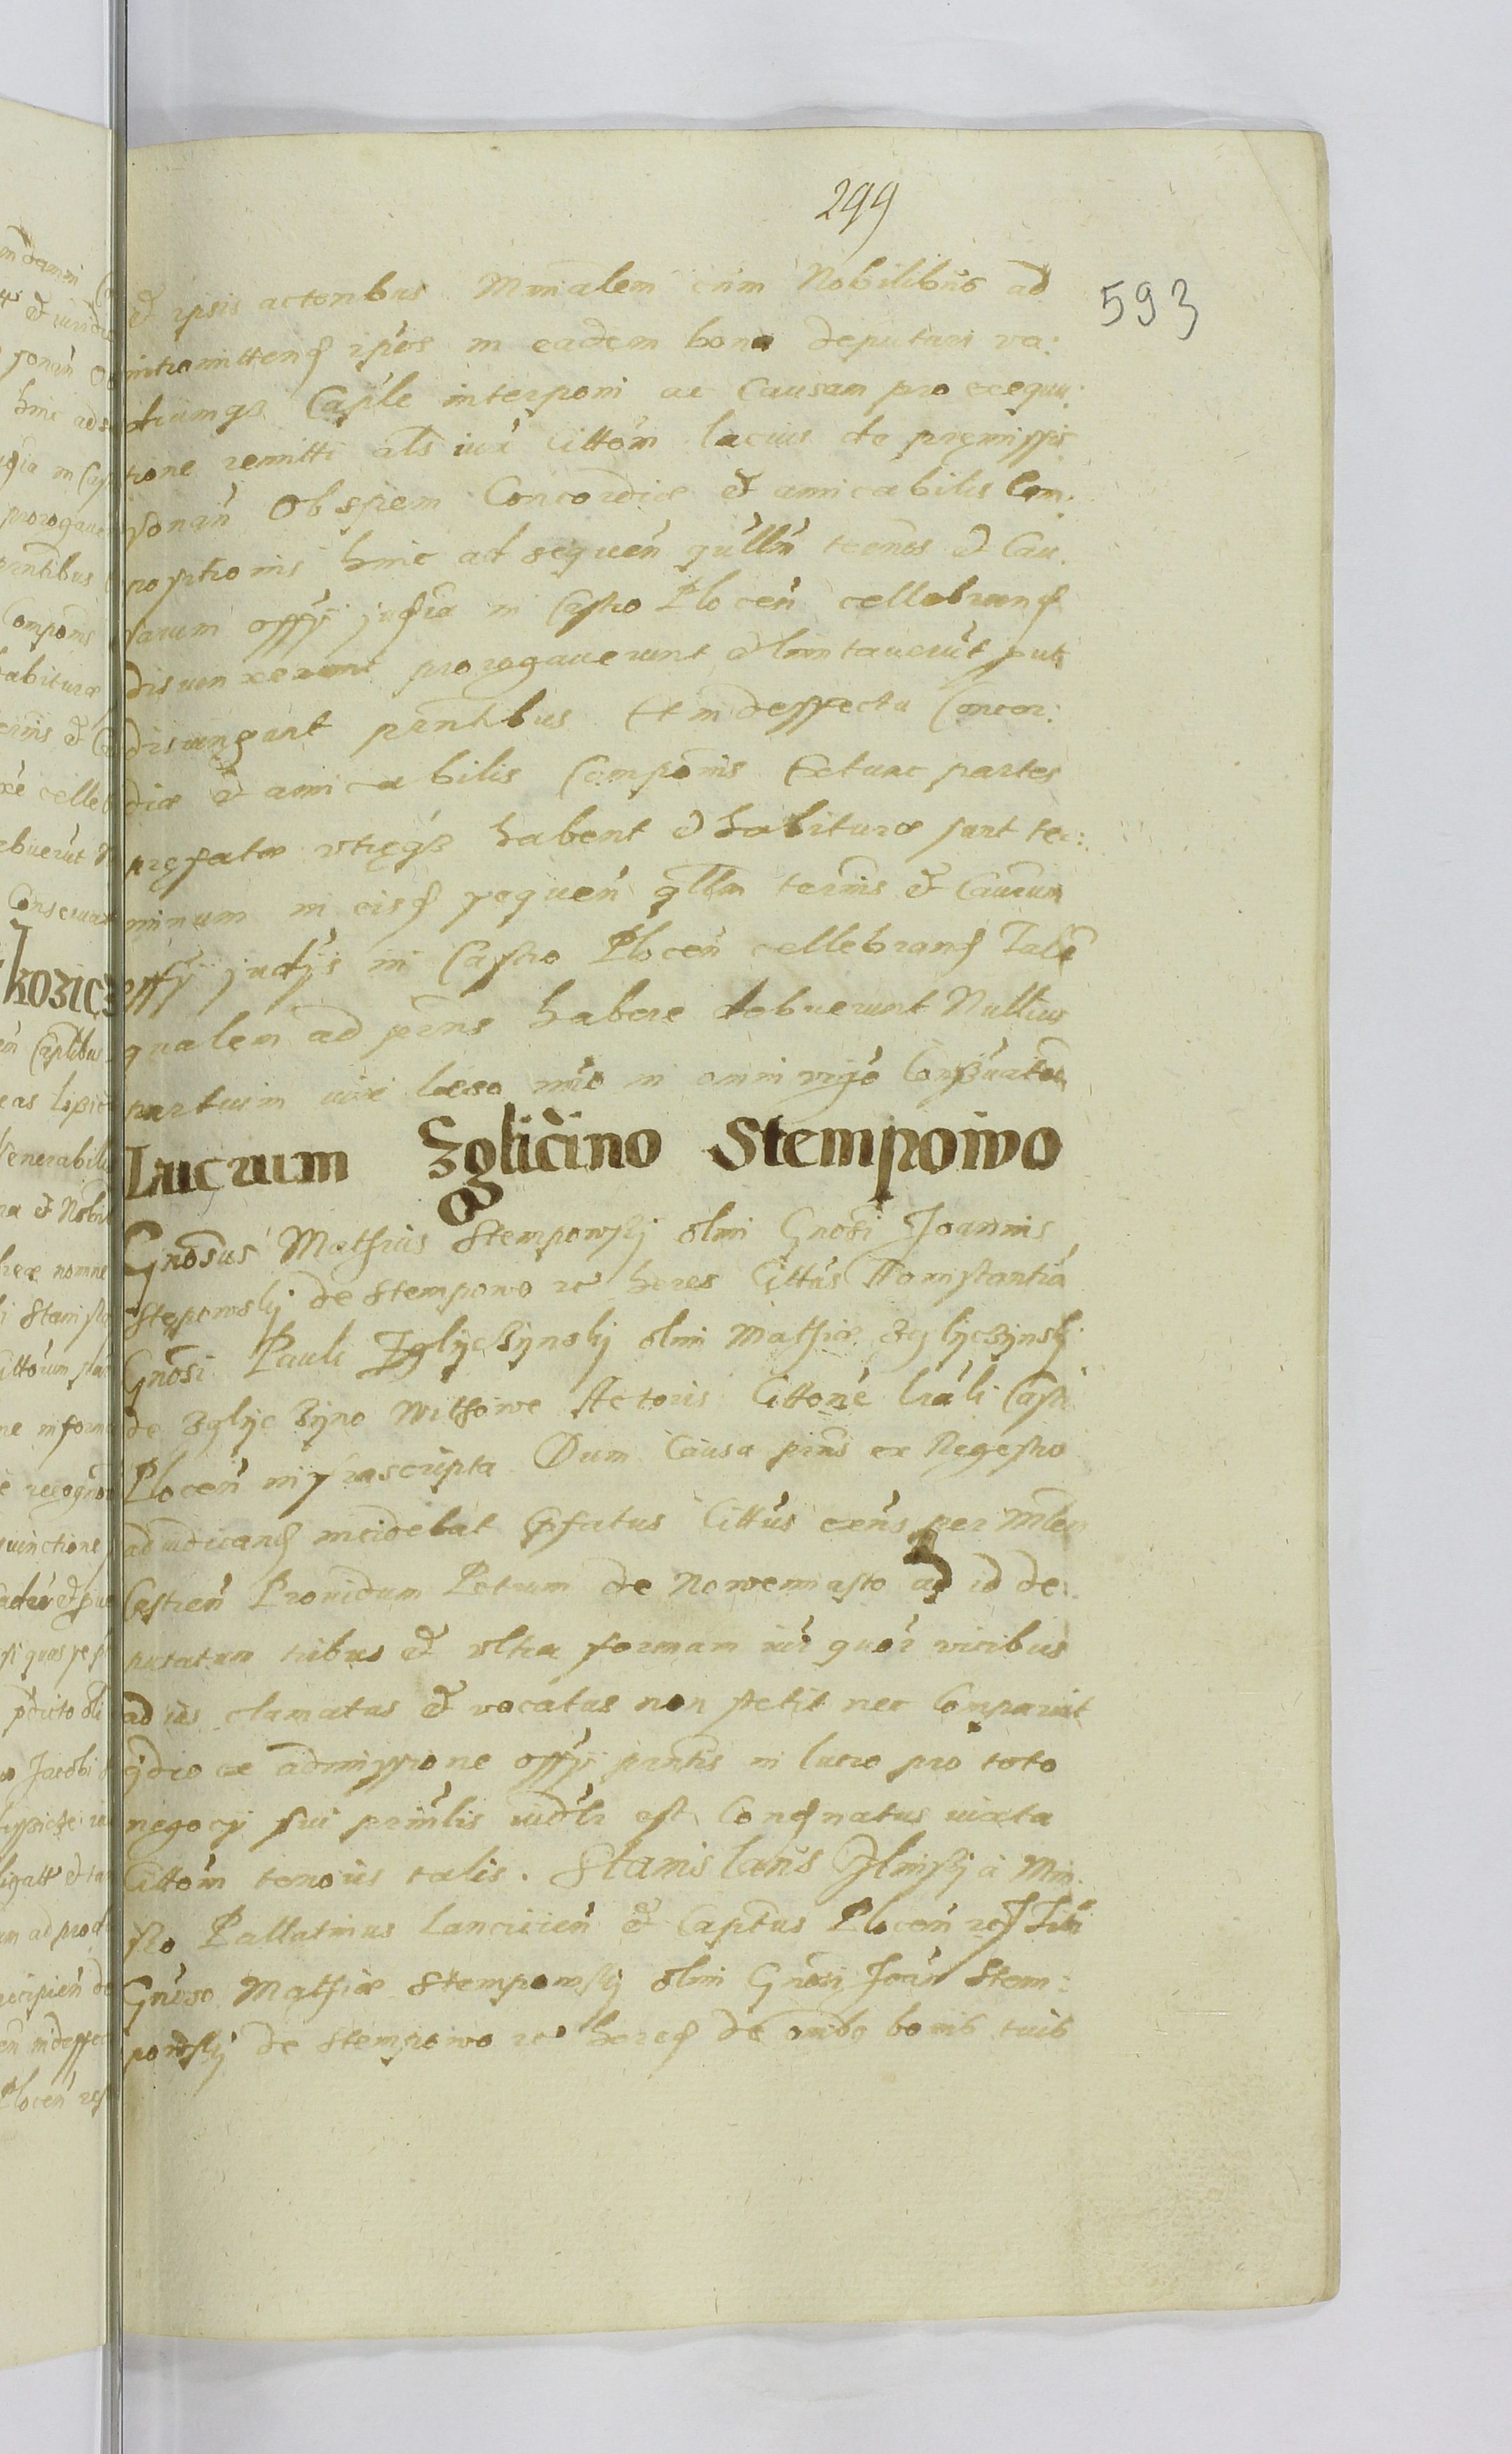 299
593
& ipsis actoribus Minalem cum Nobilibus ad
intromittend ipsos in eadem bona deputari va:
diumq3 Capłle interponi ac Causam pro exequu:
tione remitti als iux Cittõm lacius de pręmissis
sonan Ob spem Concordiæ & amicabilis Com:
positionis hinc ad sequen qullñ terños & Cau:
sarum offÿ judicia in Castro Plocen cellebrand
disiunxerunt prorogaverunt & limitaverut puta
disiungunt prntibus Et in deffectu Concor:
diæ & amicabilis Componis Extunc partes
pręfatæ vtręq3 habent & habituræ sunt ter:
minum in eisd sequen qllm terminis & Causarum
offÿ judÿs in Castro Plocen cellebrand Talẽ
qualem ad prñs habere debuerunt Nullius
partium iure læso imo in omni vigo Conservato
Lucrum Zgliċino Stempowo
Gnosus Mathias Stempowskÿ olim Gnosi Joannis
Stępowskÿ de Stempowo et heres Cittus Ad instantia
Gnosi Pauli Zglÿczÿnskÿ olim Mathiæ Zglÿczÿnskÿ
de Zglÿczÿno Withowe Actoris Cittone lrali Castri
Plocen infrascripta Dum Causa prñs ex Regestro
adiudicand incidebat Ipfatus Cittus exñs per Mlem
Cestren Providum Petrum de Nowemiasto ad id de:
putatum tribus & vltra formam iur quor vicibus
ad ius clamatus & vocatus non stetit nec Comparuit
qdio ex admissione offÿ prntis in lucro pro toto
negocÿ sui prinlis iudlr est Condnatus iuxta
Cittõm tenoris talis. Stanislaus à Min:
sko Pallatinus Lancicien & Captus Plocen Tibi
Gnoso Mathiæ Stempowskÿ olim Gnosi Joan Stem:
powskÿ de Stempowo et hered de omibs bonis tuis